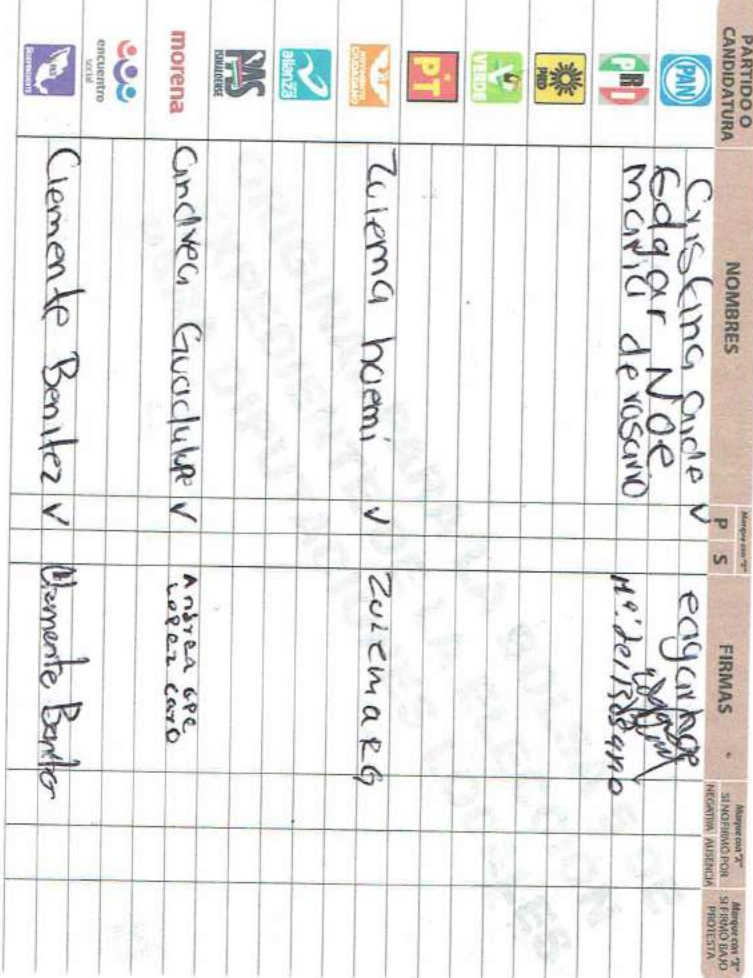 PARTIDO O
CANDIDATURA
NOMBRES
Marque con "X"
P S
FIRMAS
Marque con "X"
SI NO FIRMÓ POR
NEGATIVA AUSENCIA
Marque con "X"
SI FIRMÓ BAJO
PROTESTA
PAN
Cristina √
Edgar Noe
PRI
Maria de rosario
PRD
VERDE
PT
MOVIMIENTO
CIUDADANO
Zulema hoemi √ Zulema RG
alianza
PAS
SINALOENSE
morena
Andrea Guadulupe √ Andrea GPE
Lopez Caro
encuentro
social
Clemente Benitez √ Clemente